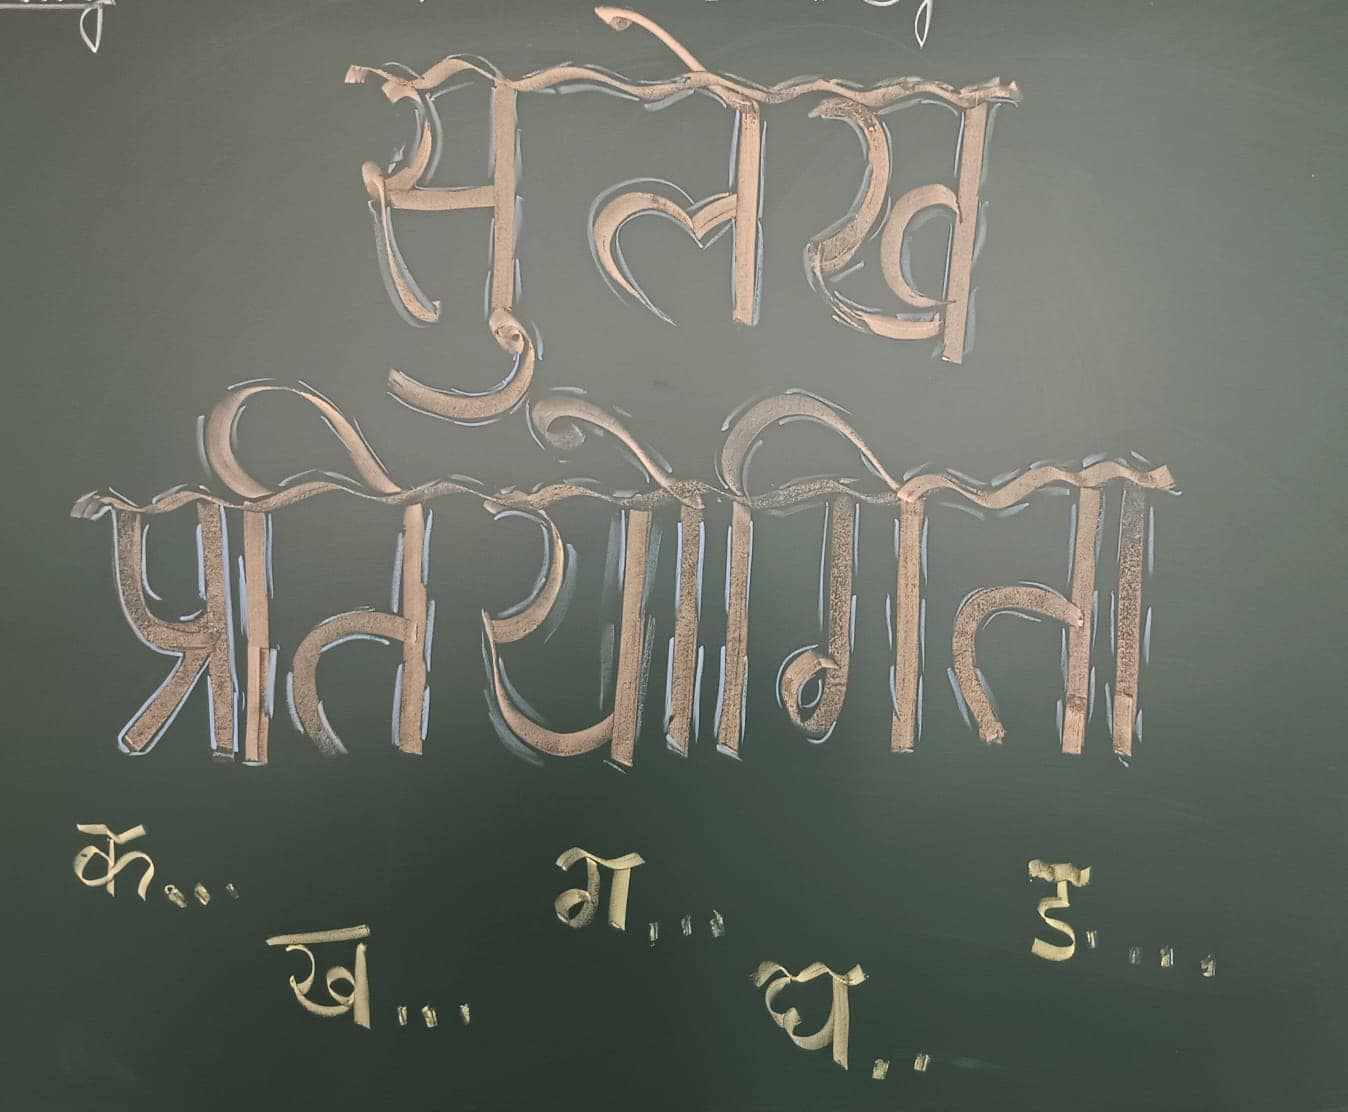 सुलेख
प्रतियोगिता
क... ग... ङ....
ख... घ..